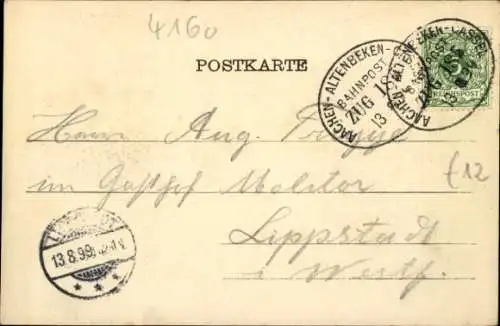 4160
POSTKARTE
AACHEN-ALTENBEKEN-
BAHNPOST
ZUG 18
13 8
AACHEN-ALTENBEKEN-CASSEL
ZUG
13
REICHSPOST
Herrn Aug.
im Gasthof Molitor
£12
Lippstadt
i Westf.
13.8.99